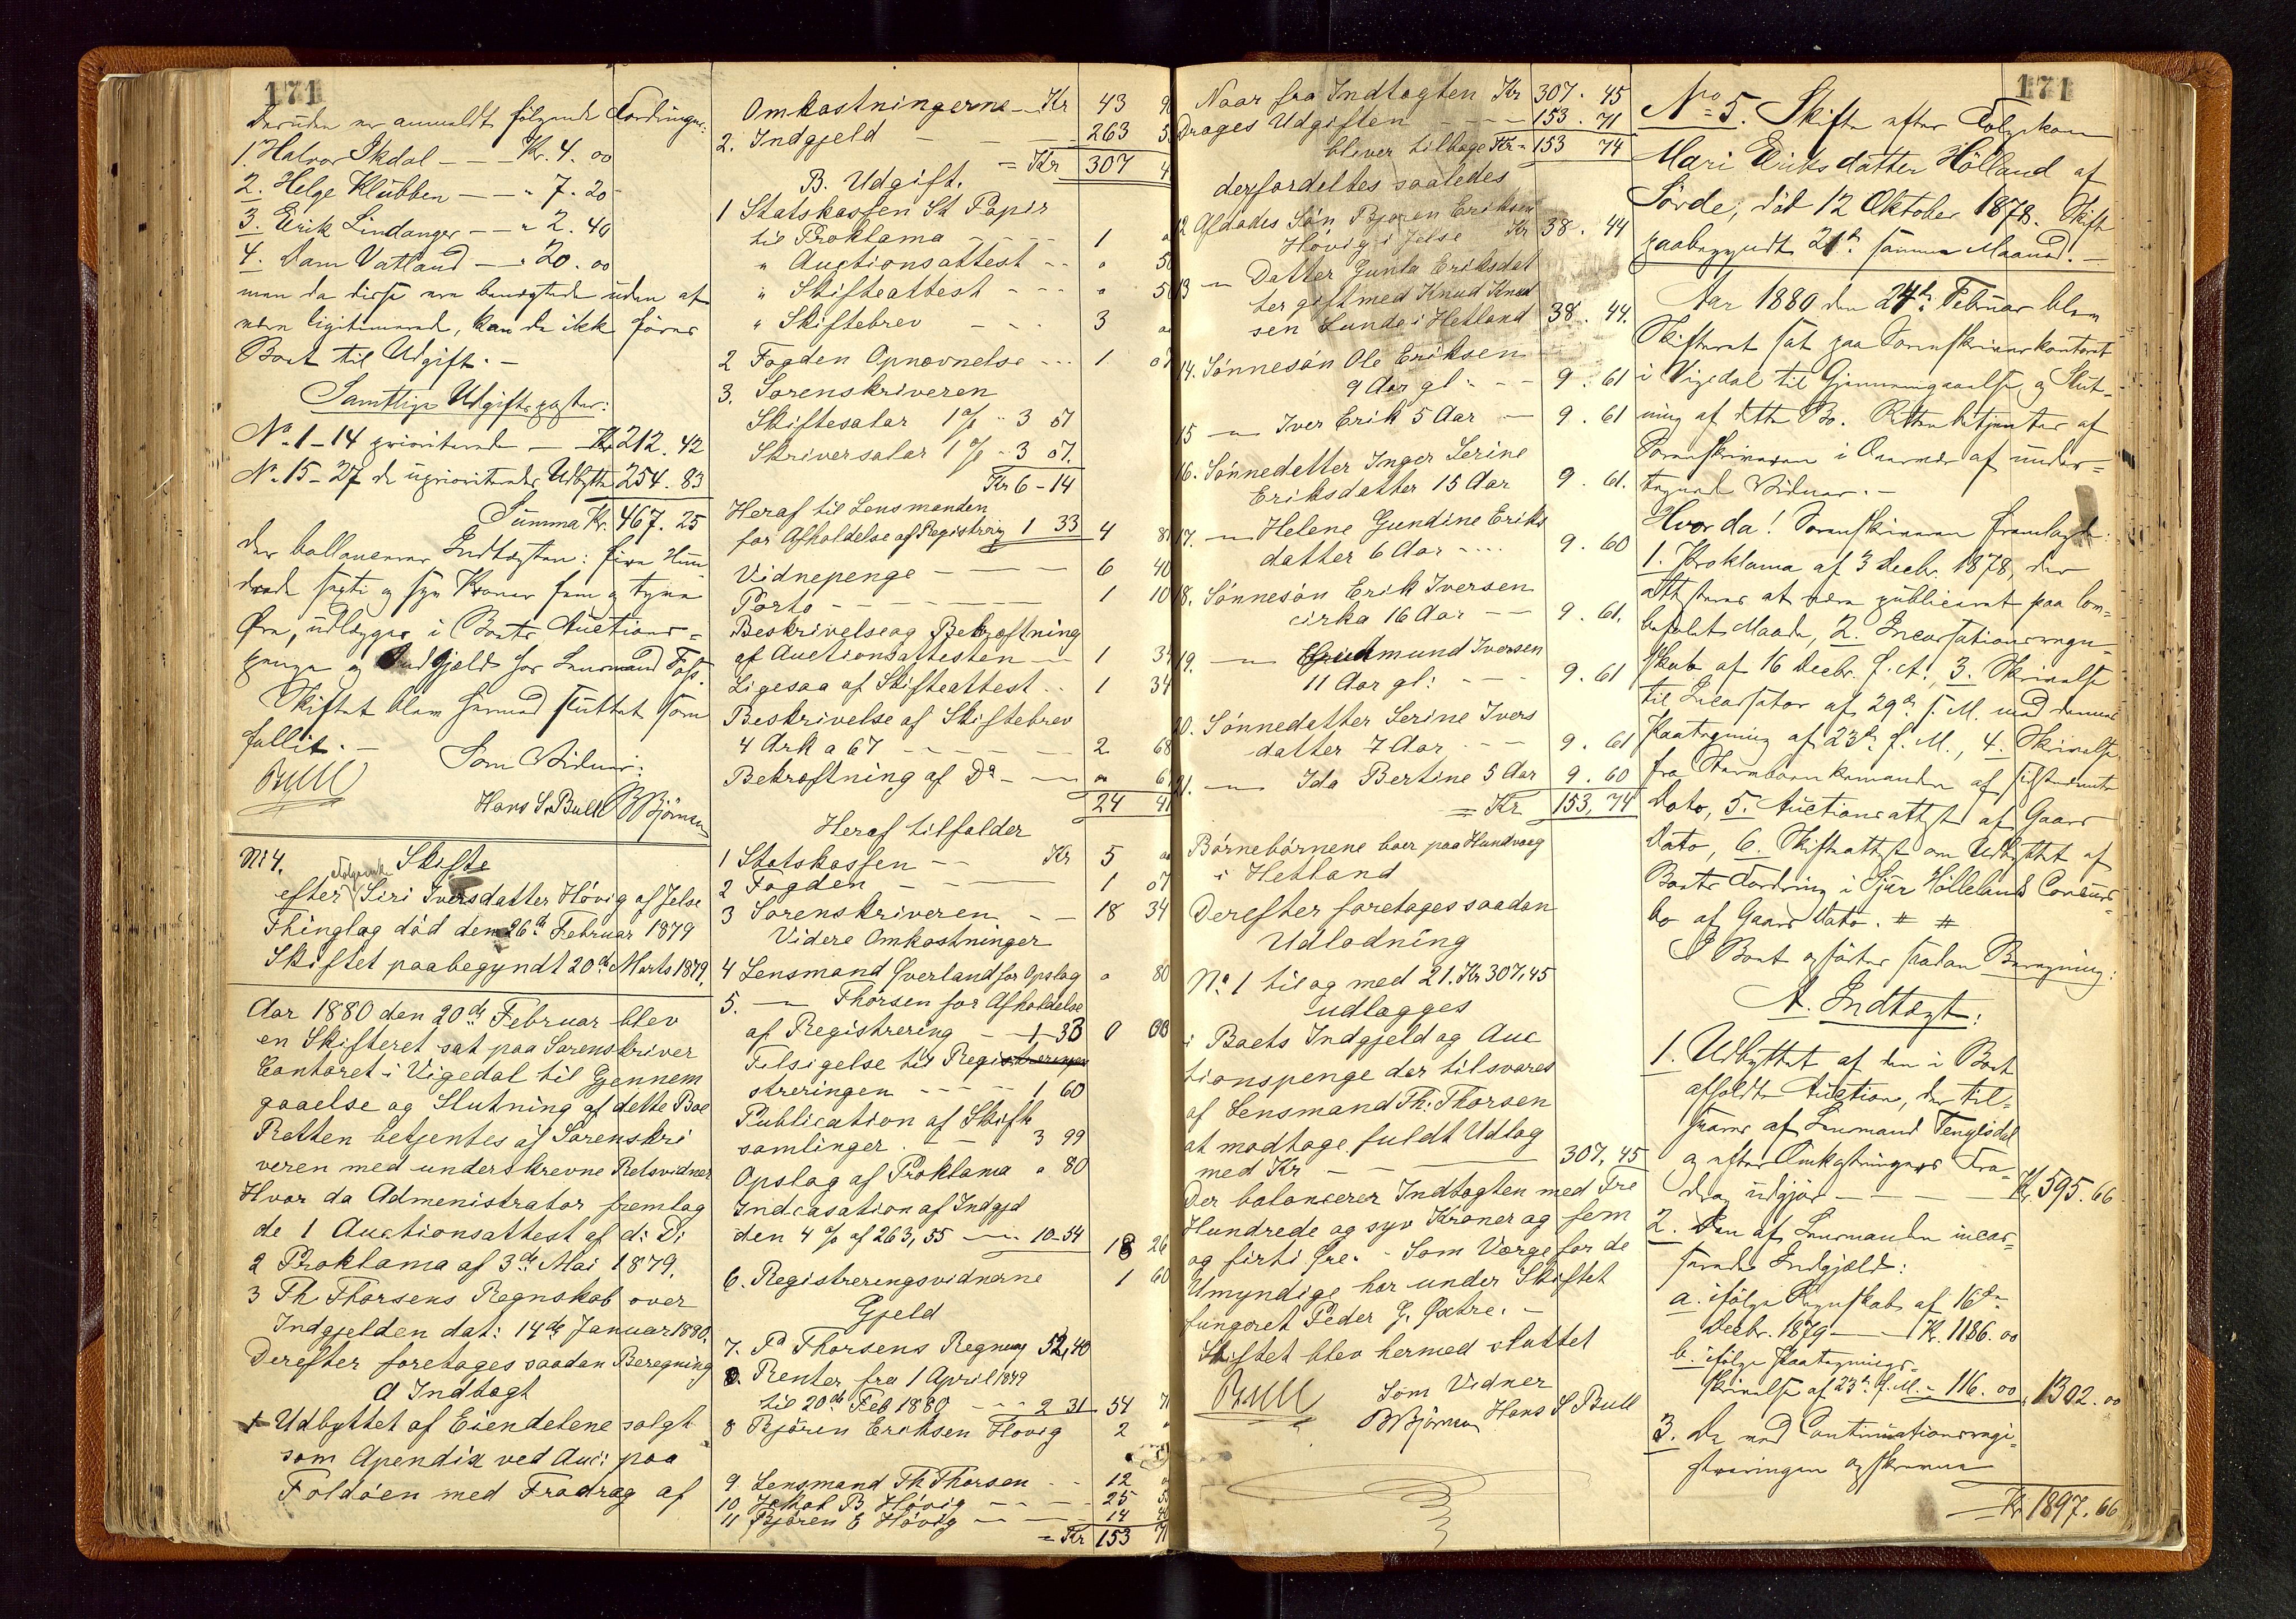 171
Desuden er anmeldt følgende Fordringer:
1. Halvor Ikdal — — Kr. 4. 00
2. Helge Klubben — — " 7. 20
3. Erik Lindanger — — " 2. 40
4. Dam Vatland — " 20. 00
men da disse ere benegtede uden at
være ligitimerede, kan de ikke føres
Boet til Udgift. —
Samtlige Udgiftsposter:
No. 1-14 prioriterede — Kr 212. 42
No. 15-27 de uprioriterede Udbytte 254. 83
Summa Kr. 467. 25
der ballancerer Indtægten: fire Hun
drede sexti og syv Kroner fem og tyve
Øre, udlægges i Boets Auctions=
penge og Indgjæld hos Lensmand Foss.
Skiftet blev hermed sluttet som
fallit. —
Som Vidner:
Bull
Hans S. Bull BBjörnsen
No 4. Skifte
efter Følgekone Siri Iversdatter Hövig af Jelse
Thinglag död den 26de Februar 1879
Skiftet paabegyndt 20de Marts 1879.
Aar 1880 den 20de Februar blev
en Skifteret sat paa Sorenskriver
Contoret i Vigedal til Gjennem
gaaelse og Slutning af dette Boe
Retten betjentes af Sorenskri
veren med underskrevne Retsvidner
Hvor da Admenistrator fremlag
de 1 Auctionsattest af d: D:
2 Proklama af 3de Mai 1879.
3 Th. Thorsens Regnskab over
Indgjelden dat: 14de Januar 1880.
Derefter foretages saadan Beregning
A Indtægt
1 Udbyttet af Eiendelene solgt
som Apendix ved Auc: paa
Foldöen med Fradrag af
Omkostningerne — Kr 43 9
2. Indgjeld — — — 263 5
= Kr 307 4
B. Udgift.
1 Statskassen St Papir
til Proklama — — — 1
" Auctionsattest - - " 50
" Skifteattest - - - " 50
" Skiftebrev — - - 3
2 Fogden Opnævnelse - - - 1 07
3. Sorenskriveren
Skiftesalær 1% " 3 07
Skriversalær 1% " 3 07.
Kr 6-14
Heraf til Lensmanden
for Afholdelse af Registrerig 1 33 4 8
Vidnepenge — — — 6 40
Porto — — — 1 10
Beskrivelse og Bekræftning
af Auctionsattesten — — 1 34
Ligesaa af Skifteattest - - 1 34
Beskrivelse af Skiftebrev
4 Ark a 67 — — — 2 68
Bekræftning af Do — — " 6
24 41
Heraf tilfalder
1 Statskassen — — Kr 5
2 Fogden — — — 1 07
3 Sorenskriveren — — 18 34
Videre Omkostninger
4 Lensmand Qverland for Opslag " 80
5. — " — Thorsen for Afholdelse
af Registrering — 1-33 0 00
Tilsigelse til Regi
streringen — — — 1 60
Publication af Skifte
samlinger — — 3 99
Opslag af Proklama " 80
Indcasation af Indgjel
den 4% af 263,55 — " 10-54 18 26
6. Registreringsvidnerne 1 60
Gjeld
7. Pd Thorsens Regning 52,40
Renter fra 1 April 1879
til 20de Feb 1880 - - - 2 31 54 71
8 Björen Eriksen Hövig 2
9 Lensmand Th Thorsen - - 12
10 Jakob B. Hövig — — — 25
11 Björen E Hövig — — — 14
= Kr 153 71
171
Naar fra Indtægten Kr 307. 45
Drages Udgiften - - - 153. 71
bliver tilbage Kr = 153 74
der fordeltes saaledes
12 Afdødes Søn Bjøren Eriksen
Hövig i Jelse Kr 38. 44
13 — " — Datter Gunla Eriksdat
ter gift med Knud Knud
sen Lunde i Hetland 38. 44.
14. Sønnesøn Ole Eriksen
9 Aar gl: - - - 9. 61
15 — " — Iver Erik 5 Aar — 9. 61
16. Sønnedatter Inger Serine
Eriksdatter 15 Aar 9. 61.
17. — " — Helene Gundine Eriks
datter 6 Aar - . . . 9. 60
18. Sønnesøn Erik Iversen
cirka 16 Aar - - 9. 61.
19. — " — Gudmund Iversen
11 Aar gl: - - - 9. 61
20. Sønnedatter Serine Ivers
datter 7 Aar - - - 9. 61
21. — " — Ida Bertine 5 Aar 9. 60
= Kr 153, 74
Børnebørnene boer paa Hundvaag
i Hetland
Derefter foretages saadan
Udlodning
No 1 til og med 21. Kr 307,45
udlægges
i Boets Indgjeld og Auc
tionspenge der tilsvares
af Lensmand Th: Thorsen
at modtage fuldt Udlæg
med Kr — — — 307, 45
Der balancerer Indtægten med Tre
Hundrede og syv Kroner og fem
og firti Øre. - Som Værge for de
Umyndige har under Skiftet
fungeret Peder G. Qxtre. —
Skiftet blev hermed sluttet
Bull Som Vidner
BBjörnsen Hans S Bull
No 5. Skifte efter Følgekone
Mari Eriksdatter Hölland af
Sövde, död 12 Oktober 1878. Skifte
paabegyndt 21de samme Maaned. —
Aar 1880 den 24de Februar blev
Skifteret sat paa Sorenskriverkontoret
i Vigedal til Gjennemgaaelse og Slut-
ning af dette Bo. Retten betjentes af
Sorenskriveren i Overvær af under=
tegnede Vidner. —
Hvor da! Sorenskriveren fremlagde:
1. Proklama af 3 Decbr. 1878, der
attesteres at være publiceret paa lov=
befalet Maade, 2. Incassationsregn=
skab af 16 Decbr. f. A., 3. Skrivelse
til Incassator af 29de s. M. med dennes
Paategning af 23de f. M., 4. Skrivelse
fra af sidstnævnte
Dato, 5. Auctionsattest af Gaars
Dato, 6. Skifteattest om Udbyttet af
Boets Fordring i Sjur Höllelands Concurs=
bo af Gaars Dato. # #
I Boet opførtes saadan Beregning:
A. Indtægt:
1. Udbyttet af den i Boet
afholdte Auction, der til=
svares af Lensmand Tengesdal
og efter Omkostningers Fra=
drag udgjør — — — Kr. 595. 66
2. Den af Lensmanden incas=
serede Indgjæld:
a. ifølge Regnskab af 16de
Decbr. 1879 — — Kr. 1186. 00
b. ifølge Paategnings-
skrivelse af 23de f. M. " 116. 00 " 1302. 00
3. De ved Continuationsregi=
streringen opskrevne
— Kr 1897. 66